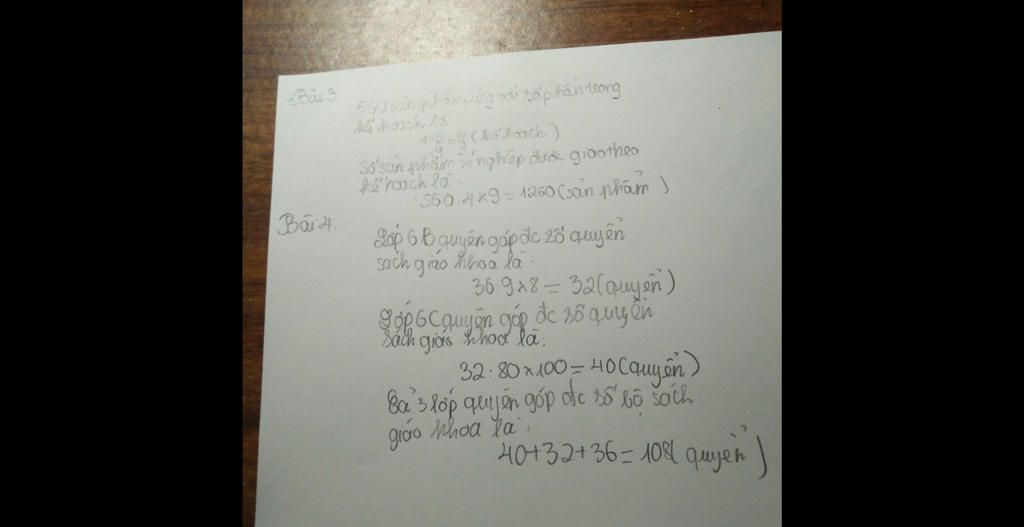 Bài 3.
560 sản phẩm ứng với số phần trong
kế hoạch là
1-5/9=4/9 (kế hoạch)
Số sản phẩm xí nghiệp được giao theo
kế hoạch là
560:4x9=1260(sản phẩm)
Bài 4.
Lớp 6B quyên góp đc số quyển
sách giáo khoa là:
36:9x8=32(quyển)
Lớp 6C quyên góp đc số quyển
sách giáo khoa là:
32:80x100=40(quyển)
Cả 3 lớp quyên góp đc số bộ sách
giáo khoa là:
40+32+36=108( quyển)